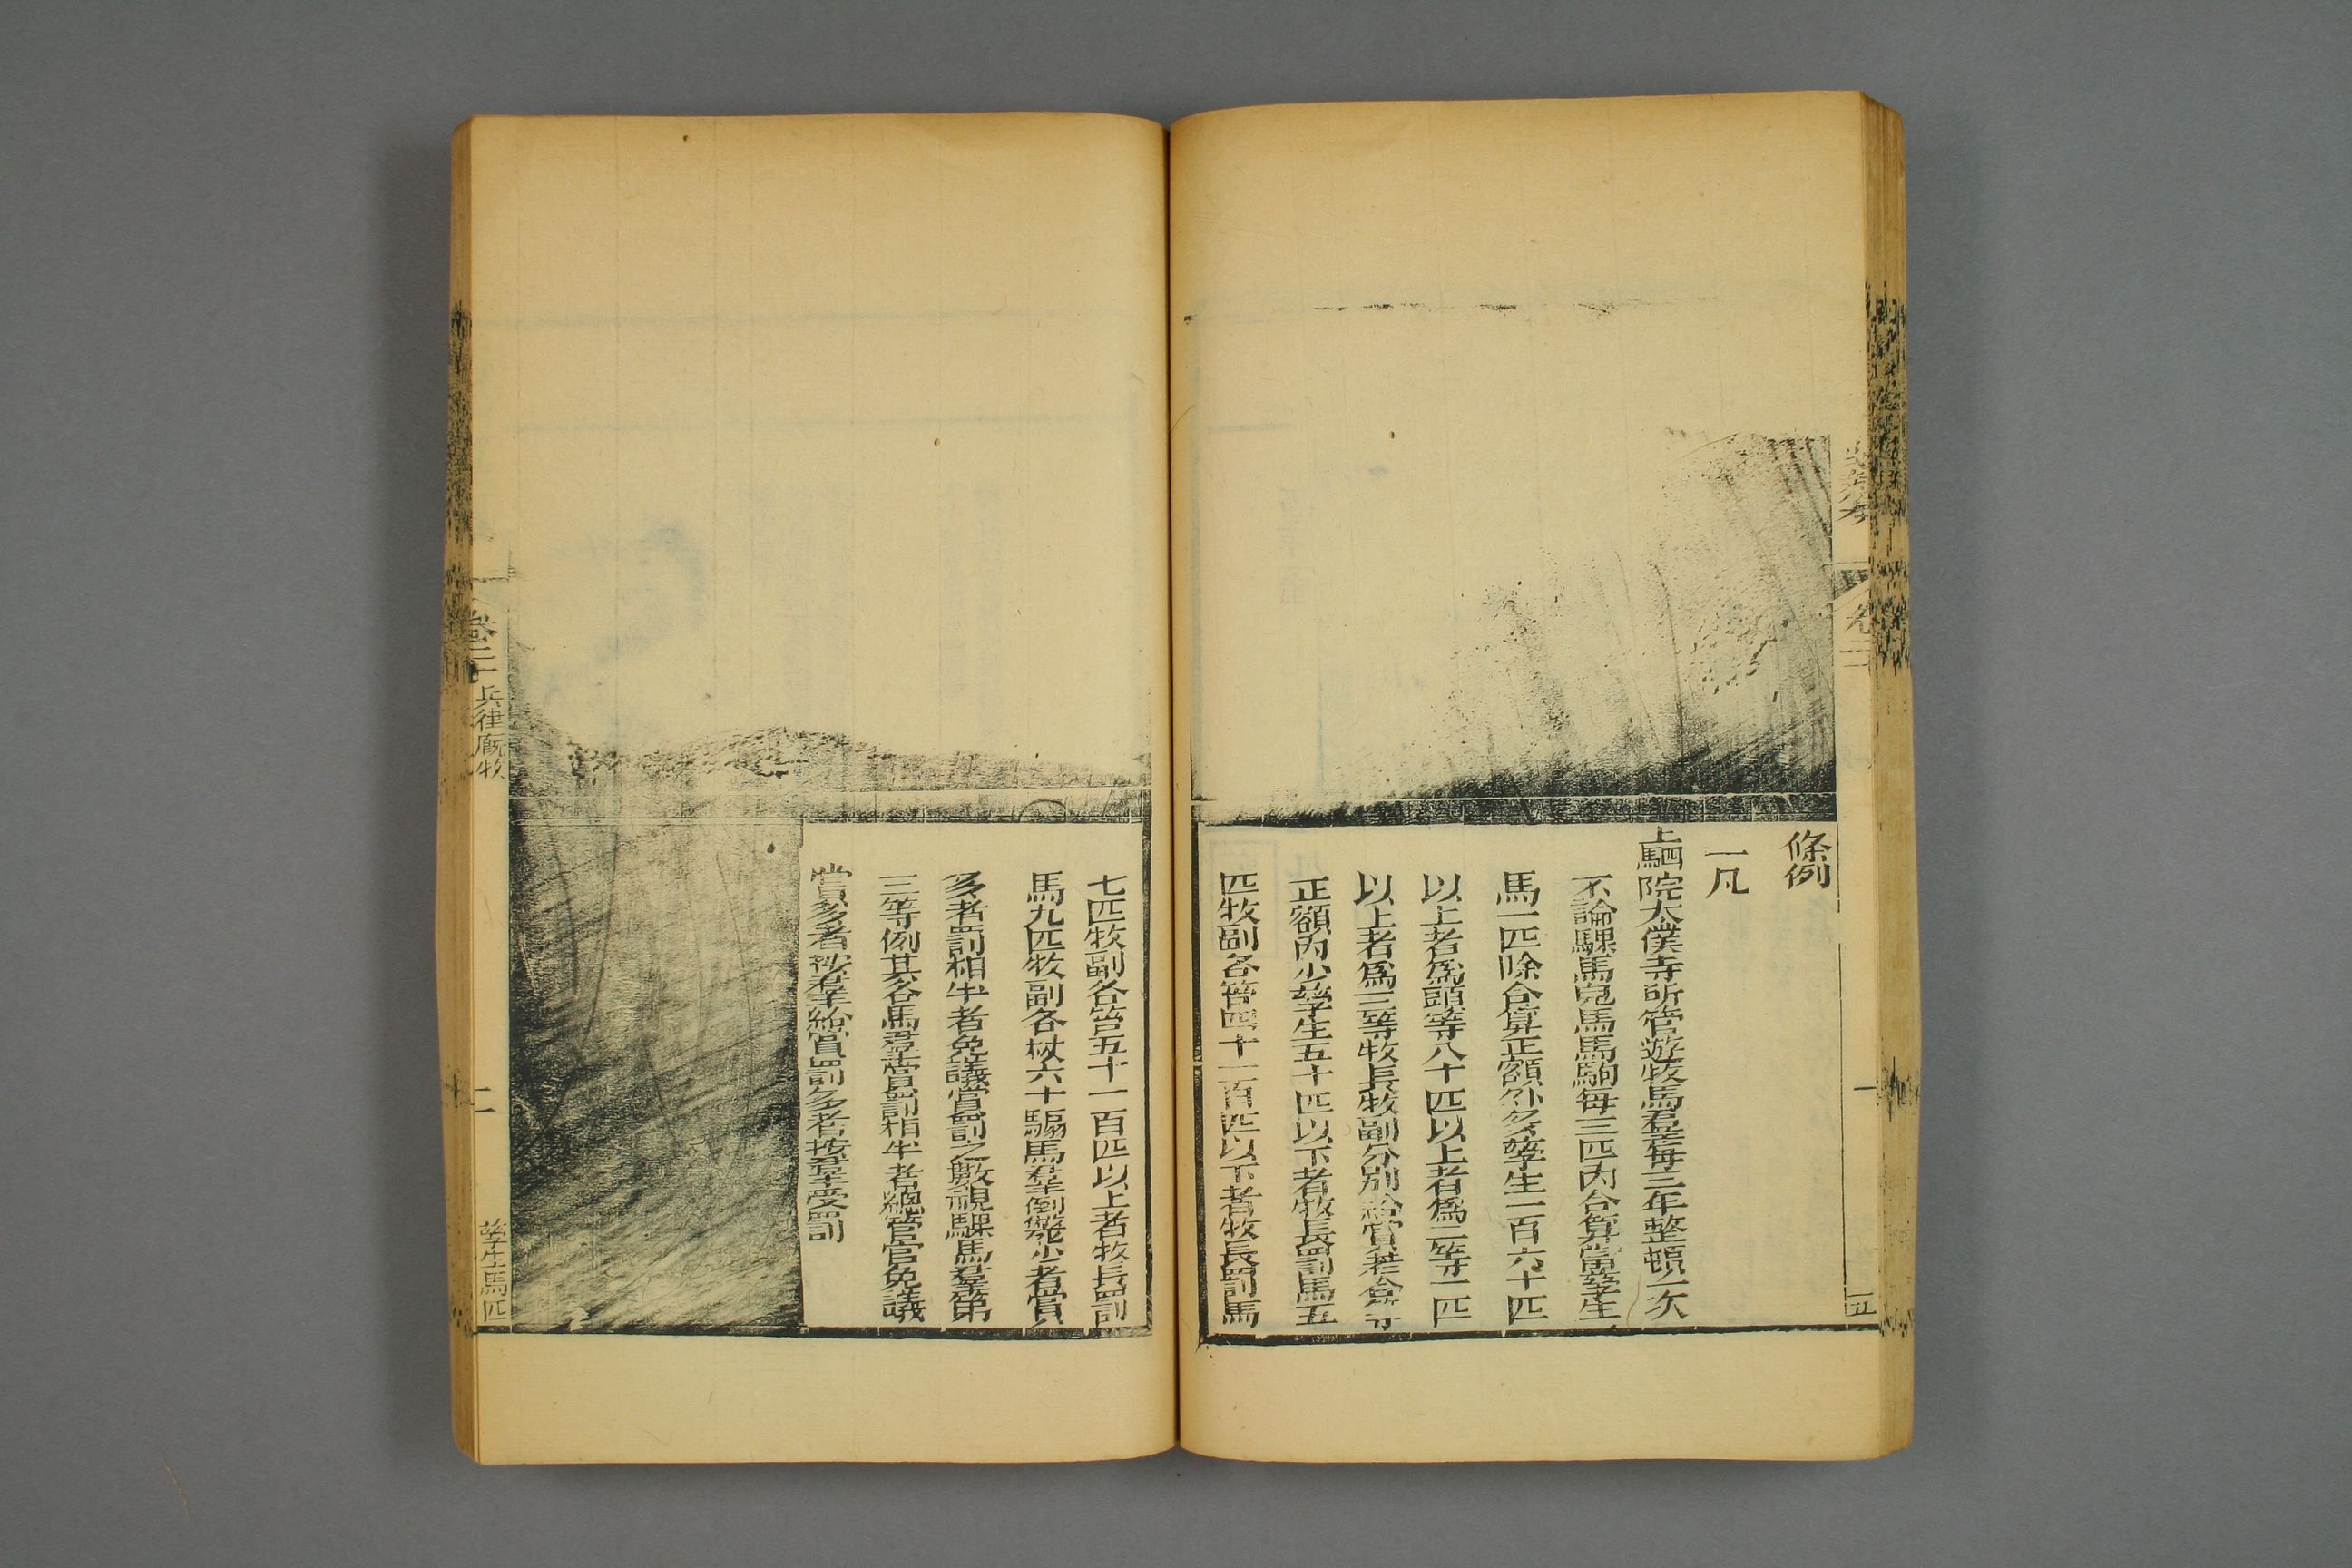 條例
一凡
上駟院太僕寺所管遊牧馬羣每三年整頓一次
不論騍馬兒馬馬駒每三匹內合算當孳生
馬一匹除合算正額外多孳生一百六十匹
以上者爲頭等八十匹以上者爲二等一匹
以上者爲三等牧長牧副分別給賞若
正額內少孳生五十匹以下者牧長罰馬五
匹牧副各笞四十一百匹以下者牧長罰馬
一
七匹牧副各笞五十一百匹以上者牧長罰
馬九匹牧副各杖六十騸馬羣倒斃少者賞
多者罰相半者免議賞罰之數視騍馬羣第
三等例其各馬羣賞罰相半者總管官免議
賞多者按羣給賞罰多者按羣受罰
卷二十 兵律廄牧 二 孳生馬匹